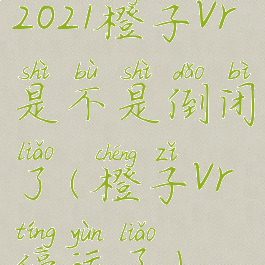 2021橙子Vr
shì bù shì dǎo bì
是不是倒闭
liǎo chéng zǐ
了(橙子Vr
tíng yùn liǎo
停运了)